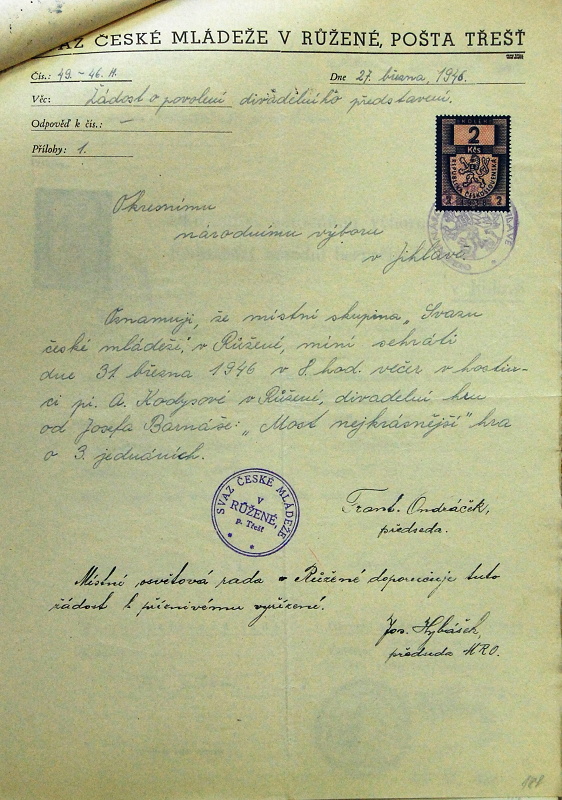 SVAZ ČESKÉ MLÁDEŽE V RŮŽENÉ, POŠTA TŘEŠŤ
Čís.: 49.-46.H. Dne 27. března, 1946.
Věc: Žádost o povolení divadelního představení.
Odpověď k čís.: -
Přílohy: 1.
KOLEK
2
Kčs
REPUBLIKA ČESKOSLOVENSKÁ
2 2
Okresnímu
národnímu výboru
v Jihlavě.
Oznamuji, že místní skupina „Svazu
české mládeže, v Růžené, míní sehráti
dne 31. března 1946 v 8 hod. večer v hostin-
ci pí. A. Kodysové v Růžené, divadelní hru
od Josefa Barnáše: „Most nejkrásnější" hra
o 3. jednáních.
SVAZ ČESKÉ MLÁDEŽE
V
RŮŽENÉ,
p. Třešť
Frant. Ondráček,
předseda.
Místní osvětová rada - Růžené doporučuje tuto
žádost k příznivému vyřízené.
Jos. Hybášek,
předseda MRO.